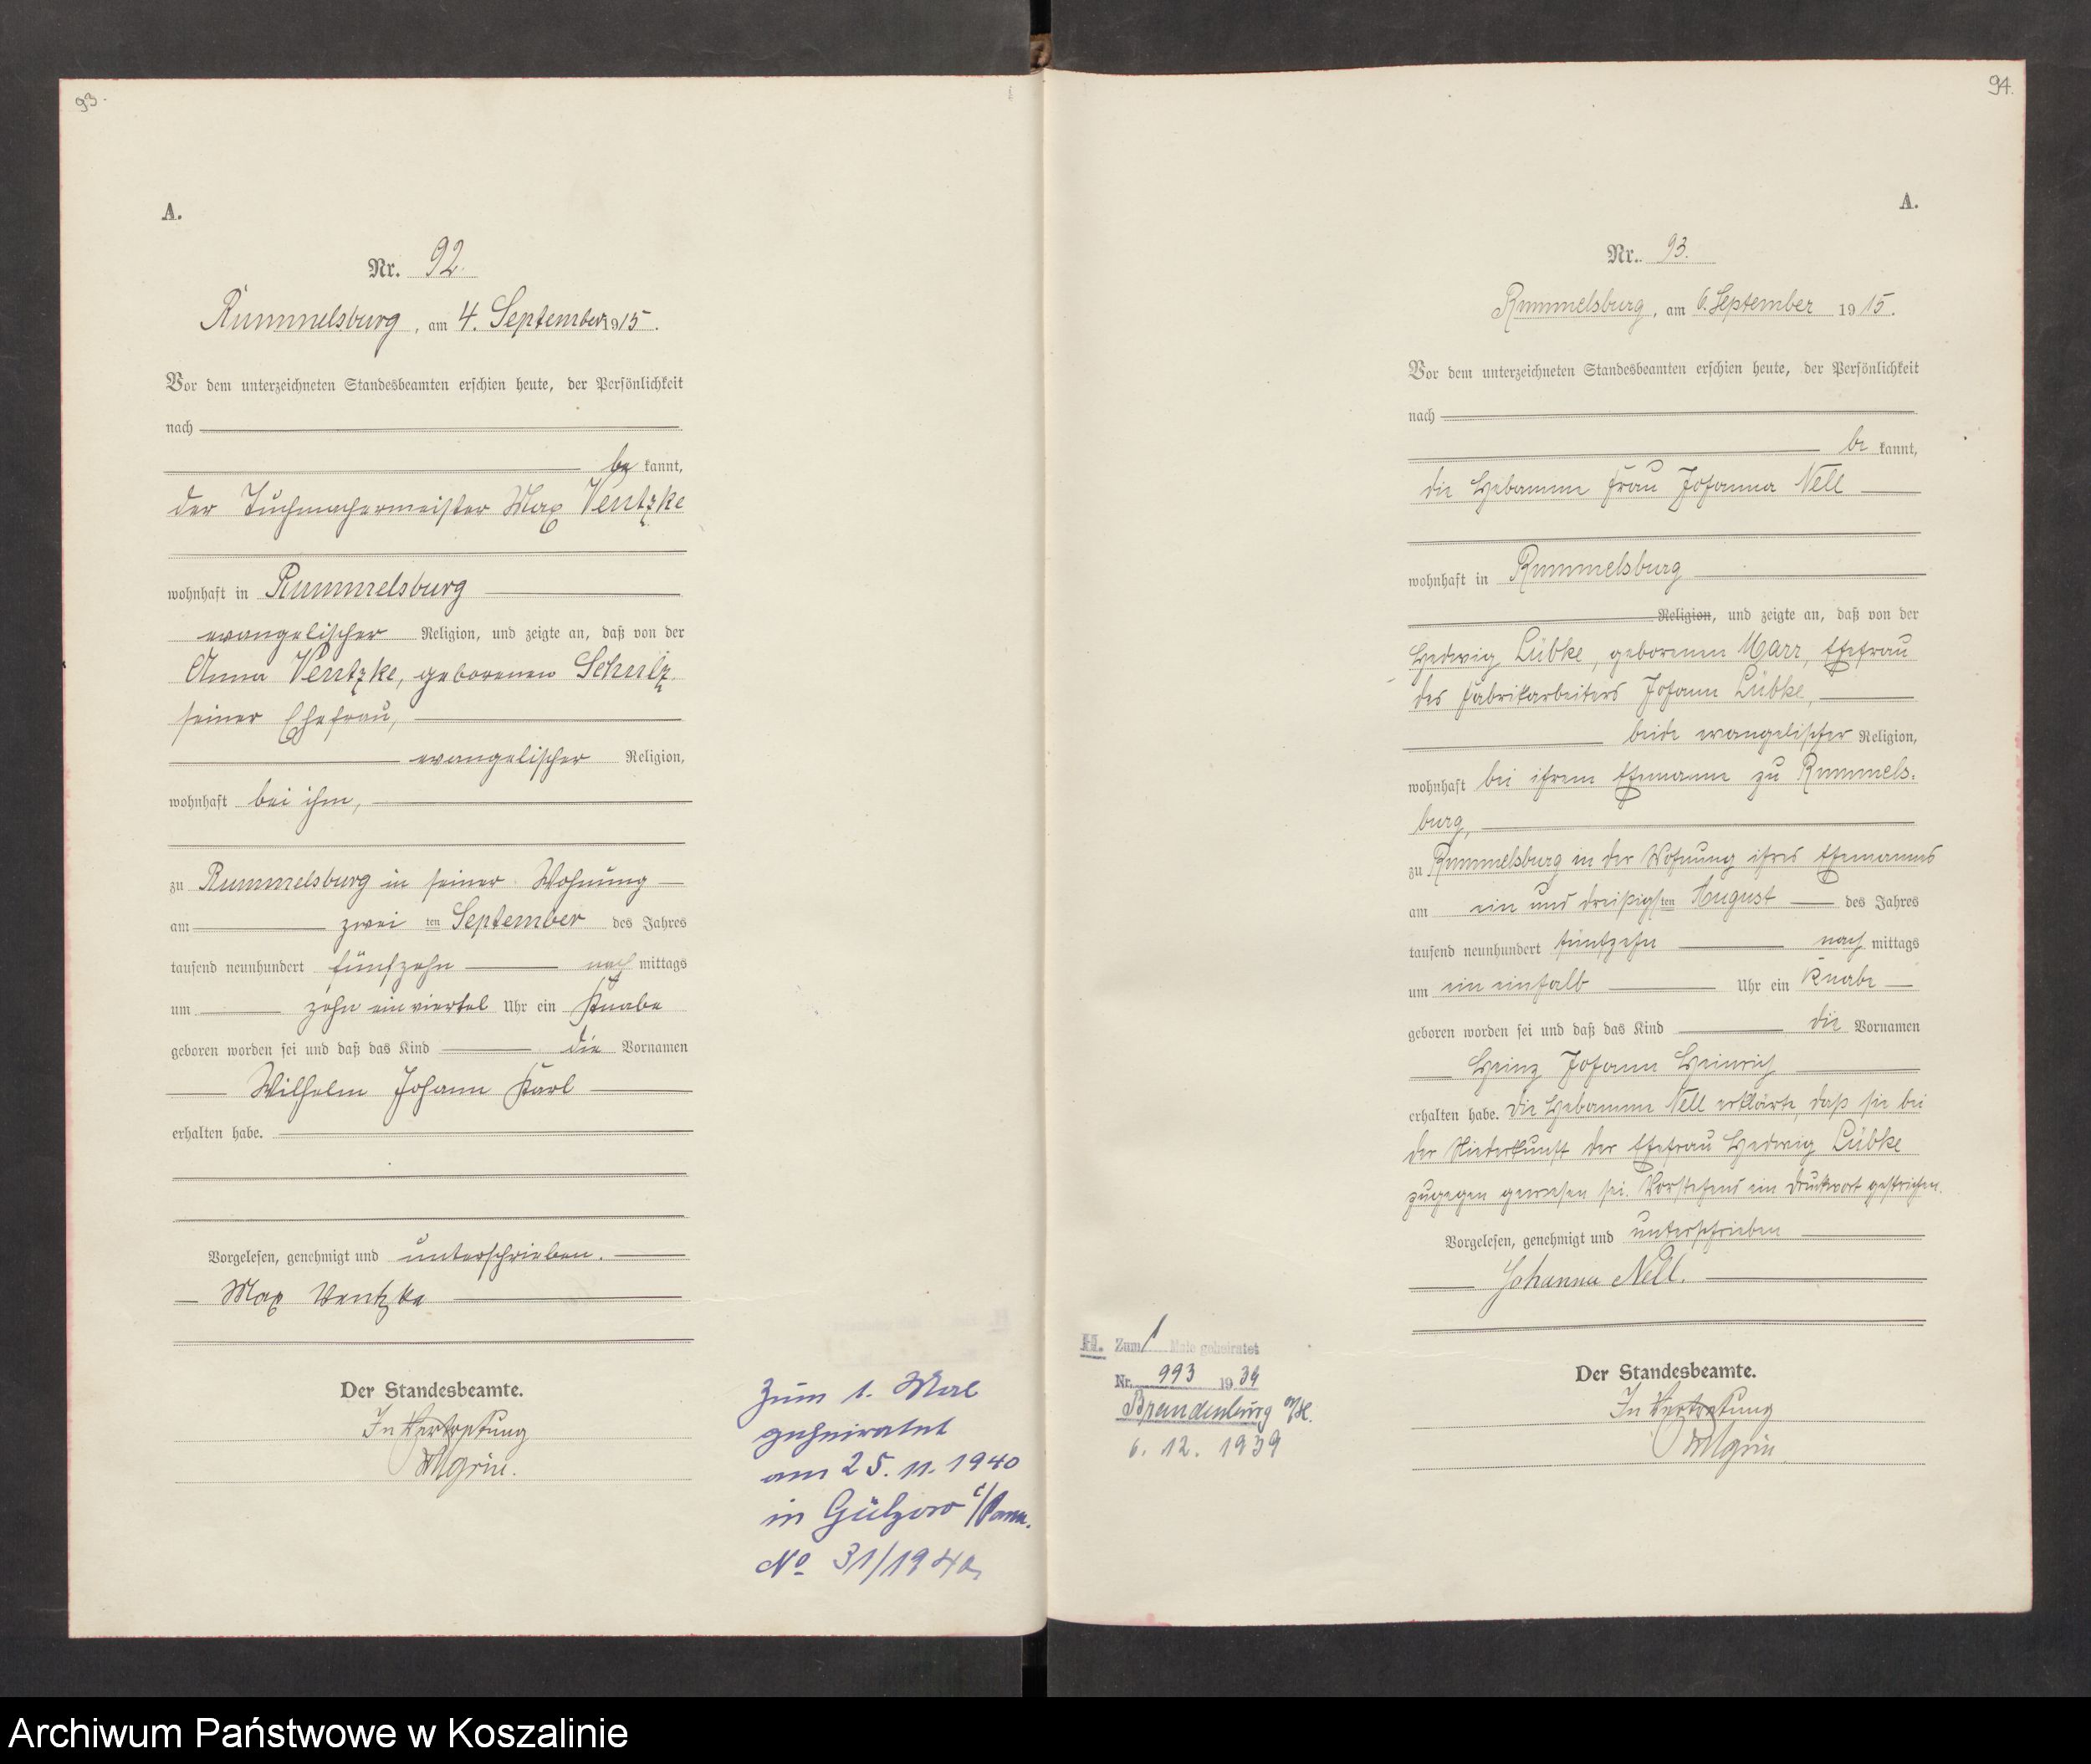 93.
A.
Nr. 92.
Rummelsburg, am 4. September 1915.
Vor dem unterzeichneten Standesbeamten erschien heute, der Persönlichkeit
nach
be kannt,
der Tuchmachermeister Max Ventzke
wohnhaft in Rummelsburg
evangelischer Religion, und zeigte an, daß von der
Anna Ventzke, geborenen Schulz
seiner Ehefrau,
evangelischer Religion,
wohnhaft bei ihm,
zu Rummelsburg in seiner Wohnung
am zwei ten September des Jahres
tausend neunhundert fünfzehn nach mittags
um zehn ein viertel Uhr ein Knabe
geboren worden sei und daß das Kind die Vornamen
Wilhelm Johann Karl
erhalten habe.
Vorgelesen, genehmigt und unterschrieben.
Max Ventzke
Der Standesbeamte.
In Vertretung
Zum 1. Mal
geheiratet
am 25. 11. 1940
in Gülzow i/Pom.
No 31/1940
94.
A.
Nr. 93.
Rummelsburg, am 6. September 1915.
Vor dem unterzeichneten Standesbeamten erschien heute, der Persönlichkeit
nach
be kannt,
die Hebamme Frau Johanna Nell
wohnhaft in Rummelsburg
Religion, und zeigte an, daß von der
Hedwig Lübke, geborenen Marr, Ehefrau
des Fabrikarbeiters Johann Lübke,
beide evangelischer Religion,
wohnhaft bei ihrem Ehemanne zu Rummels-
burg,
zu Rummelsburg in der Wohnung ihres Ehemannes
am ein und dreißigsten August des Jahres
tausend neunhundert fünfzehn nach mittags
um ein einhalb Uhr ein Knabe
geboren worden sei und daß das Kind die Vornamen
Heinz Johann Heinrich
erhalten habe. Die Hebamme Nell erklärte, daß sie bei
der Niederkunft der Ehefrau Hedwig Lübke
zugegen gewesen sei. Vorstehend ein Druckwort gestrichen.
Vorgelesen, genehmigt und unterschrieben
Johanna Nell.
H. Zum 1 Male geheiratet
Nr. 993 1939
Brandenburg a/H.
6. 12. 1939
Der Standesbeamte.
In Vertretung
Archiwum Państwowe w Koszalinie